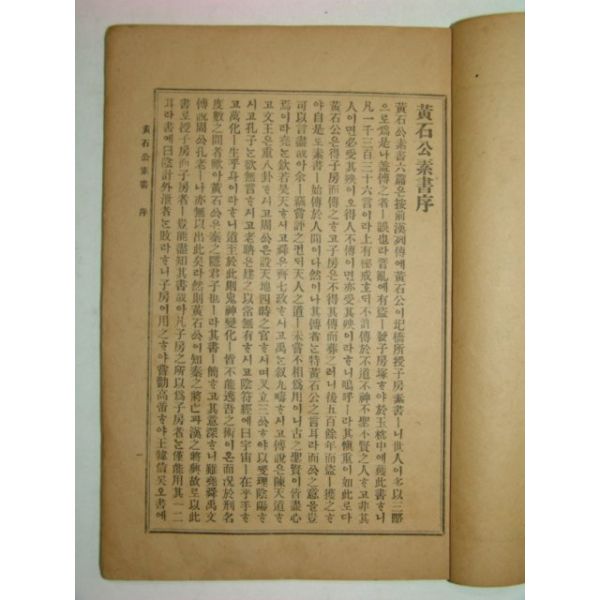 黃石公素書序
黃石公素書六篇은按前漢列傳에黃石公이圯橋所授子房素書ㅣ니世人이多以三略
으로爲是나蓋傳之者ㅣ誤也라晋亂에有盜ㅣ發子房塚ᄒᆞ야於玉枕中에獲此書ᄒᆞ니
凡一千三百三十六言이라上有秘戒호ᄃᆡ不許傳於不道不神不聖不賢之人ᄒᆞ고非其
人이면必受其殃이오得人不傳이면亦受其殃이라ᄒᆞ니嗚呼ㅣ라其愼重이如此로다
黃石公은得子房而傳之ᄒᆞ고子房은不得其傳而葬之러니後五百餘年而盜ㅣ獲之ᄒᆞ
야自是로素書ㅣ始傳於人間이나然이나其傳者ᄂᆞᆫ特黃石公之言耳라而公之意을豈
可以言盡哉아余ㅣ竊嘗評之컨ᄃᆡ天人之道ㅣ未嘗不相爲用이니古之聖賢이皆盡心
焉이라堯ᄂᆞᆫ欽若昊天ᄒᆞ시고舜은齊七政ᄒᆞ시고禹ᄂᆞᆫ叙九疇ᄒᆞ시고傅說은陳天道ᄒᆞ
고文王은重八卦ᄒᆞ시고周公은設天地四時之官ᄒᆞ시며又立三公ᄒᆞ야以燮理陰陽ᄒᆞ
시고孔子ᄂᆞᆫ欲無言ᄒᆞ시고老聃은建之以常無有ᄒᆞ시고陰符經에曰宇宙ㅣ在乎手ᄒᆞ
고萬化ㅣ生乎身이라ᄒᆞ니道至於此則鬼神變化ㅣ皆不能逃吾之術이온而况於刑名
度數之間者歟아黃石公은秦之隱君子也ㅣ라其書ㅣ簡ᄒᆞ고其意深ᄒᆞ니雖堯舜禹文
傅說周公孔老ㅣ나亦無以出此矣라然則黃石公이知秦之將亡과漢之將興故로以此
書로授子房而子房者ㅣ豈能盡知其書哉아凡子房之所以爲子房者ᄂᆞᆫ僅能用其一二
耳라書에曰陰計外泄者ᄂᆞᆫ敗라ᄒᆞ니子房이用之ᄒᆞ야嘗勸高帝ᄒᆞ야王韓信矣오書에
黃石公素書 序